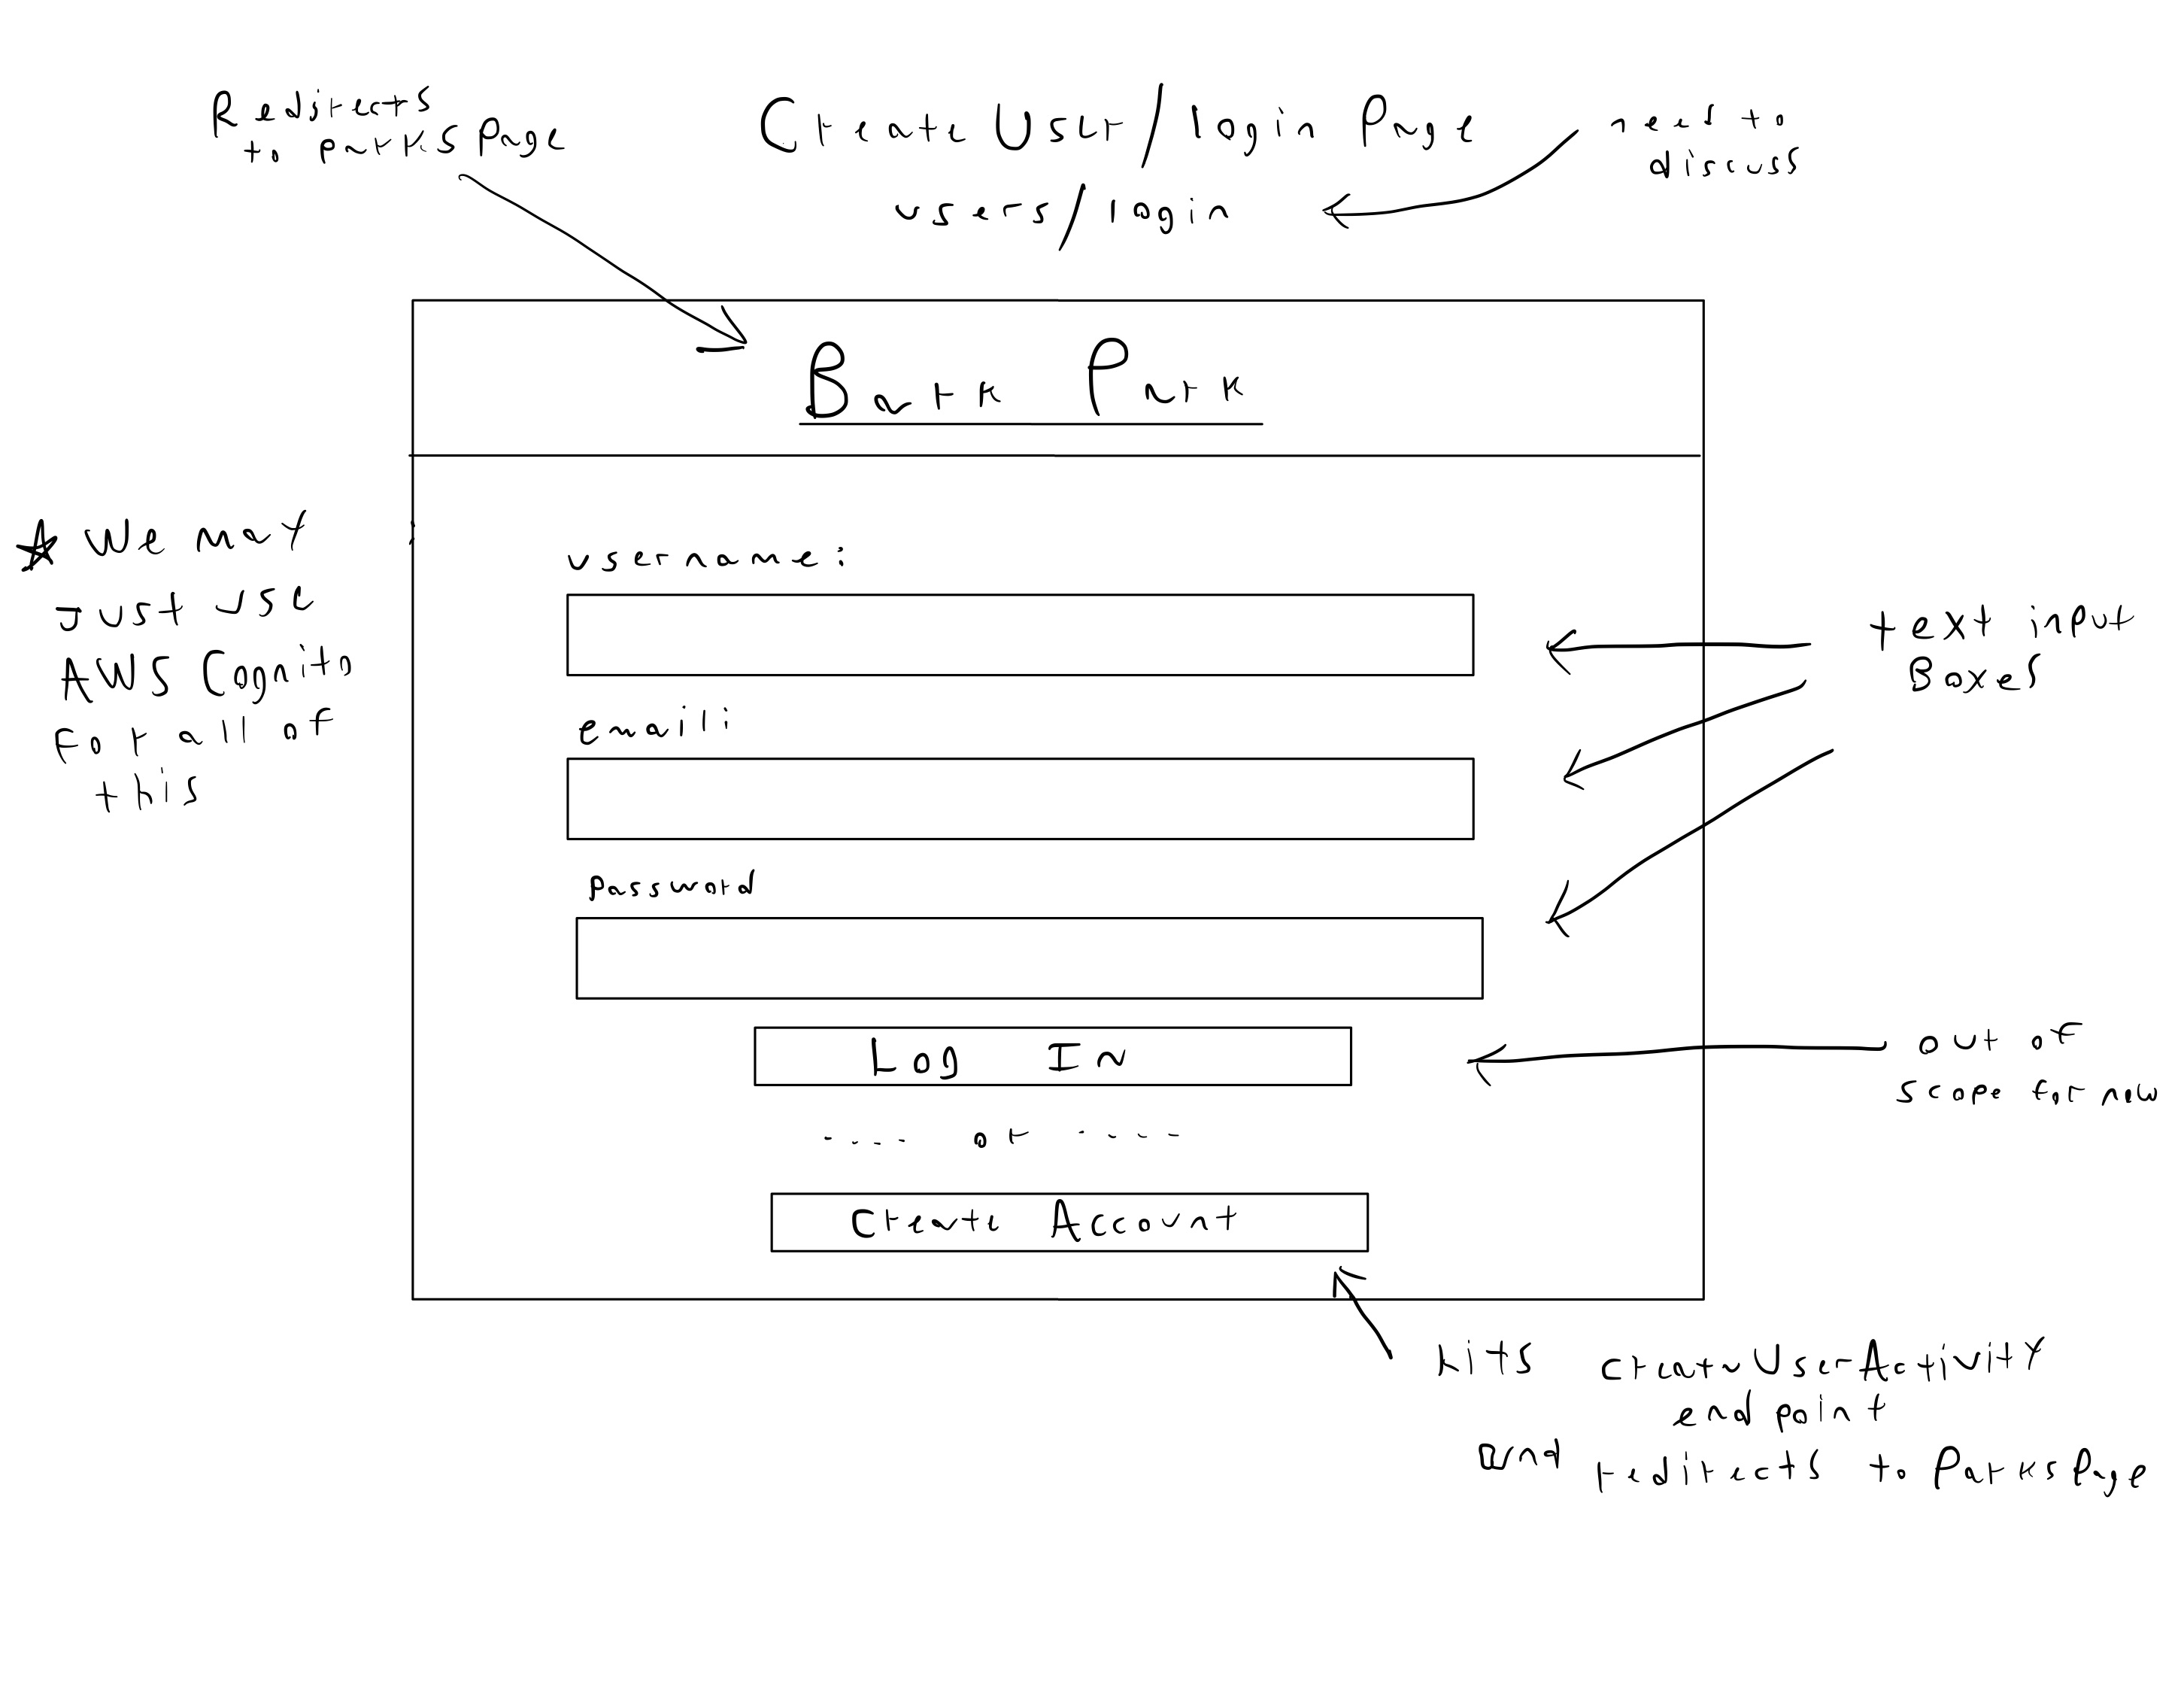 Redirects
to parks page
Create User/login Page
users/login
need to
discuss
Bark Park
★ We may
just use
AWS Cognito
for all of
this
username:
email:
password
text input
Boxes
Log In
---- or ----
Create Account
out of
scope for now
hits createUserActivity
endpoint
and redirects to Parks Page